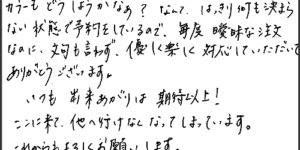 カラーもどうしようかなぁ？なんて、はっきり何も決まら
ない状態で予約をしているので、毎度曖昧な注文
なのに、文句も言わず、優しく楽しく対応していただいて
ありがとうございます。
いつも出来あがりは期待以上！
ここに来て、他へ行けなくなってしまっています。
これからもよろしくお願いします。